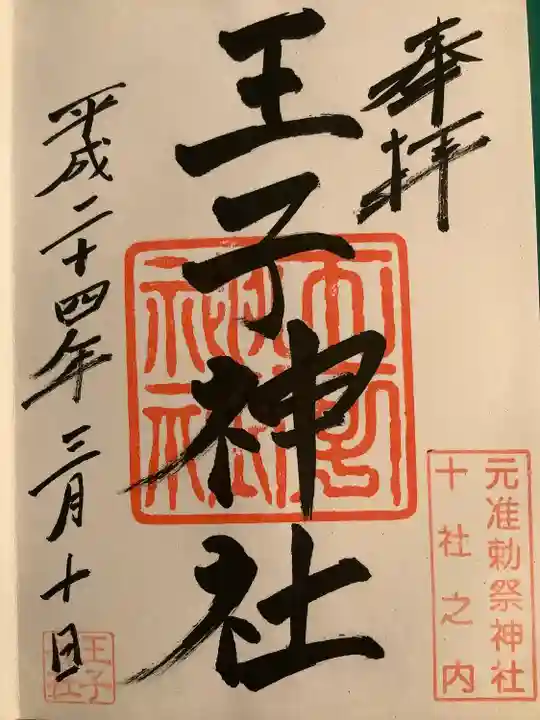 奉拝
王子神社
平成二十四年三月十日
元准勅祭神社
十社之内
王子